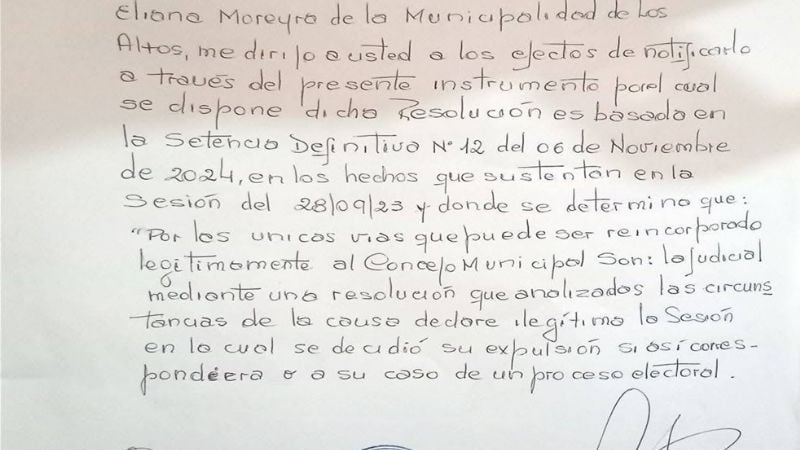 Eliana Moreyra de la Municipalidad de Los
Altos, me dirijo a usted a los efectos de notificarlo
a través del presente instrumento por el cual
se dispone dicha Resolución es basada en
la Setencia Definitiva N° 12 del 06 de Noviembre
de 2024, en los hechos que sustentan en la
Sesión del 28/09/23 y donde se determino que:
"Por las unicas vias que puede ser reincorporado
legitimamente al Concejo Municipal Son: la Judicial
mediante una resolución que analizados las circuns
tancias de la causa declare ilegítima la Sesión
en la cual se decidió su expulsión si así corres-
pondiera o a su caso de un proceso electoral.